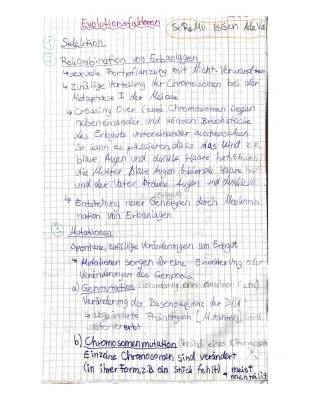 Evolutionsfaktoren
① Selektion
② Rekombination von Erbanlagen
↳ sexuelle Fortpflanzung mit Nicht-Verwandten
↳ zufällige Verteilung der Chromosomen bei der
Metaphase I der Meiose
↳ Crossing Over (zwei Chromosomen liegen
nebeneinander und können Bruchstücke
des Erbguts untereinander austauschen.
So kann es passieren dass das Kind z.B.
blaue Augen und dunkle Haare hat, obwohl
die Mutter blaue Augen blonde Haare hat
und der Vater braune Augen und dunkle
↳ Entstehung neuer Genotypen durch
nation von Erbanlagen
③ Mutationen
spontane, zufällige Veränderungen am Erbgut
↳ Mutationen sorgen für eine Erweiterung oder
Veränderungen des Genpools
a) Genmutation (Veränderung eines einzelnen Gens)
Veränderung der Basensequenz der DNA
↳ abgeänderte Phänotypen [Mutanten] und
weitervererbt
b) Chromosomenmutation
Einzelne Chromosomen sind verändert
(in ihrer Form, z.B. ein Stück fehlt) → meist
nachteilig